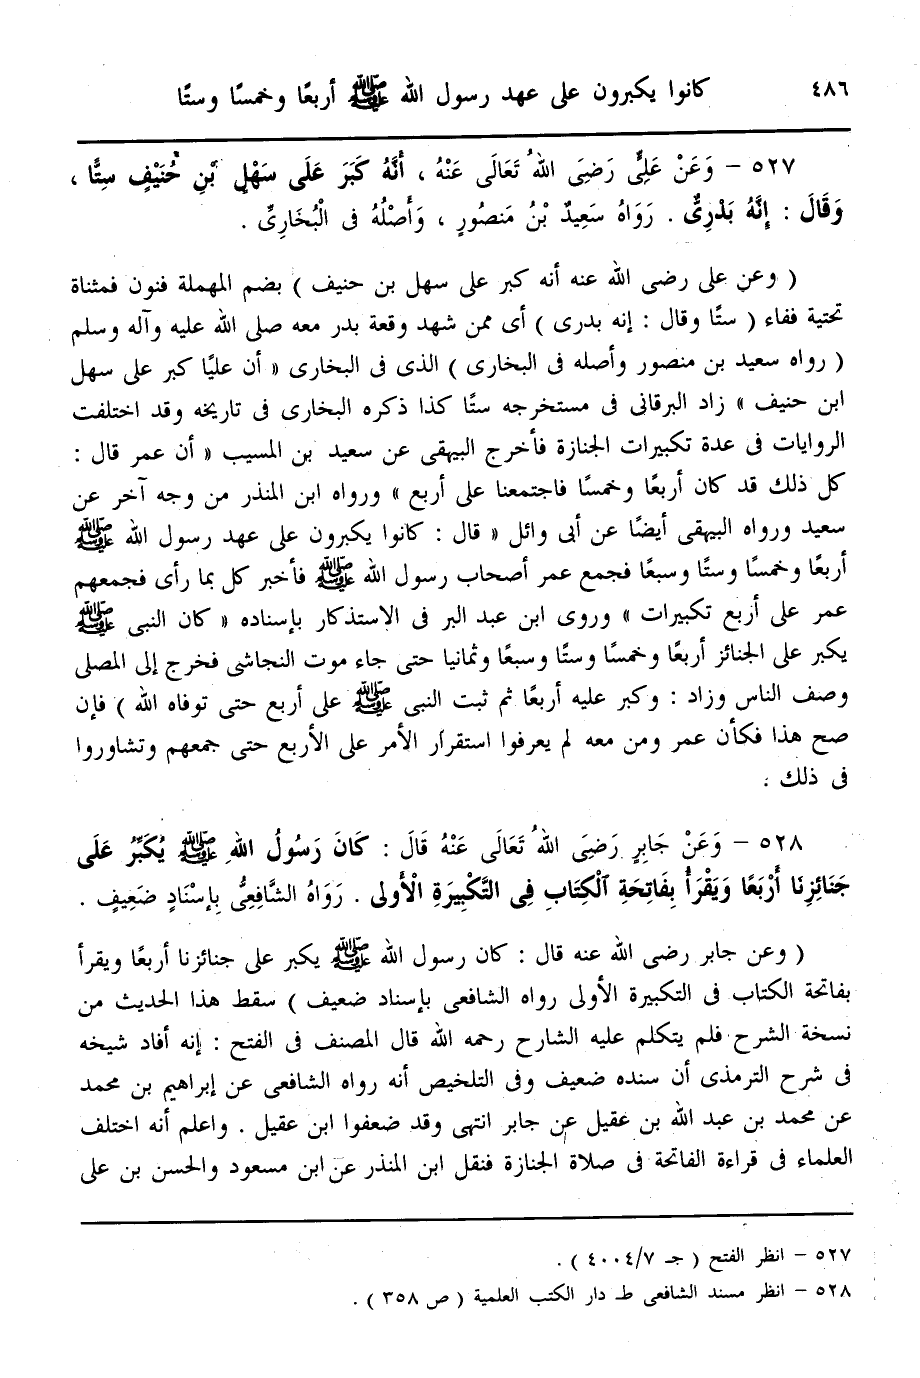 ٤٨٦ كانوا يكبرون على عهد رسول الله ﷺ أربعًا وخمسًا وستًا
٥٢٧ – وَعَنْ عَلِيٍّ رَضِيَ اللهُ تَعَالَى عَنْهُ ، أَنَّهُ كَبَّرَ عَلَى سَهْلِ بْنِ حُنَيْفٍ سِتًّا ،
وَقَالَ : إِنَّهُ بَدْرِىٌّ . رَوَاهُ سَعِيدُ بْنُ مَنصُورٍ ، وَأَصْلُهُ فى الْبُخَارِىِّ .
( وعن على رضى الله عنه أنه كبر على سهل بن حنيف ) بضم المهملة فنون فمثناة
تحتية ففاء ( ستًا وقال : إنه بدرى ) أى ممن شهد وقعة بدر معه صلى الله عليه وآله وسلم
( رواه سعيد بن منصور وأصله فى البخارى ) الذى فى البخارى « أن عليًا كبر على سهل
ابن حنيف » زاد البرقانى فى مستخرجه ستًا كذا ذكره البخارى فى تاريخه وقد اختلفت
الروايات فى عدة تكبيرات الجنازة فأخرج البيهقى عن سعيد بن المسيب « أن عمر قال :
كل ذلك قد كان أربعًا وخمسًا فاجتمعنا على أربع » ورواه ابن المنذر من وجه آخر عن
سعيد ورواه البيهقى أيضًا عن أبى وائل « قال : كانوا يكبرون على عهد رسول الله ﷺ
أربعًا وخمسًا وستًا وسبعًا فجمع عمر أصحاب رسول الله ﷺ فأخبر كل بما رأى فجمعهم
عمر على أربع تكبيرات » وروى ابن عبد البر فى الاستذكار بإسناده « كان النبى ﷺ
يكبر على الجنائز أربعًا وخمسًا وستًا وسبعًا وثمانيا حتى جاء موت النجاشى فخرج إلى المصلى
وصف الناس وزاد : وكبر عليه أربعًا ثم ثبت النبى ﷺ على أربع حتى توفاه الله ) فإن
صح هذا فكأن عمر ومن معه لم يعرفوا استقرار الأمر على الأربع حتى جمعهم وتشاوروا
فى ذلك .
٥٢٨ – وَعَنْ جَابِرٍ رَضِيَ اللهُ تَعَالَى عَنْهُ قَالَ : كَانَ رَسُولُ اللهِ ﷺ يُكَبِّرُ عَلَى
جَنَائِزِنَا أَرْبَعًا وَيَقْرَأُ بِفَاتِحَةِ الْكِتَابِ فِى التَّكْبِيرَةِ الْأُولى . رَوَاهُ الشَّافِعِىُّ بِإِسْنَادٍ ضَعِيفٍ .
( وعن جابر رضى الله عنه قال : كان رسول الله ﷺ يكبر على جنائزنا أربعًا ويقرأ
بفاتحة الكتاب فى التكبيرة الأولى رواه الشافعى بإسناد ضعيف ) سقط هذا الحديث من
نسخة الشرح فلم يتكلم عليه الشارح رحمه الله قال المصنف فى الفتح : إنه أفاد شيخه
فى شرح الترمذى أن سنده ضعيف وفى التلخيص أنه رواه الشافعى عن إبراهيم بن محمد
عن محمد بن عبد الله بن عقيل عن جابر انتهى وقد ضعفوا ابن عقيل . واعلم أنه اختلف
العلماء فى قراءة الفاتحة فى صلاة الجنازة فنقل ابن المنذر عن ابن مسعود والحسن بن على
٥٢٧ – انظر الفتح ( جـ ٤٠٠٤/٧ ) .
٥٢٨ – انظر مسند الشافعى طـ دار الكتب العلمية ( ص ٣٥٨ ) .